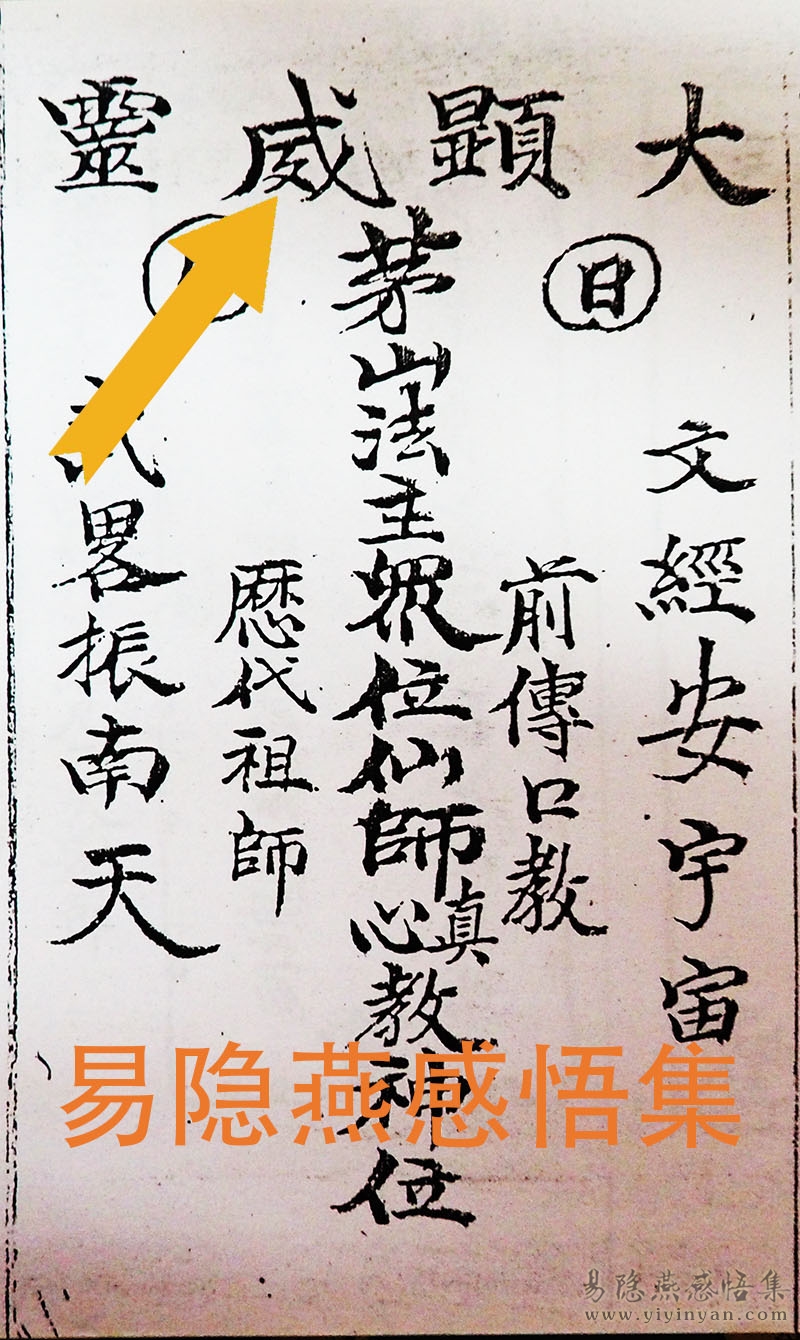 大顯威靈
日
文經安宇宙
前傳口教
茅山法主眾位仙師真心教神位
歷代祖師
武畧振南天
易隐燕感悟集
易隐燕感悟集
www.yiyinyan.com